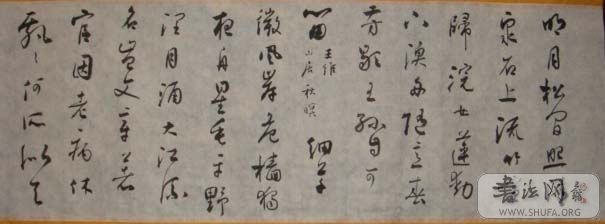 明月松间照
泉石上流竹
歸浣女蓮動
下漁舟随意春
芳歇王孫自可
留
王維
山居秋暝
細草
微風岸危檣獨
夜舟星垂平野
阔月涌大江流
名豈文章著
官因老病休
飄々何所似天
書法网
WWW.SHUFA.ORG